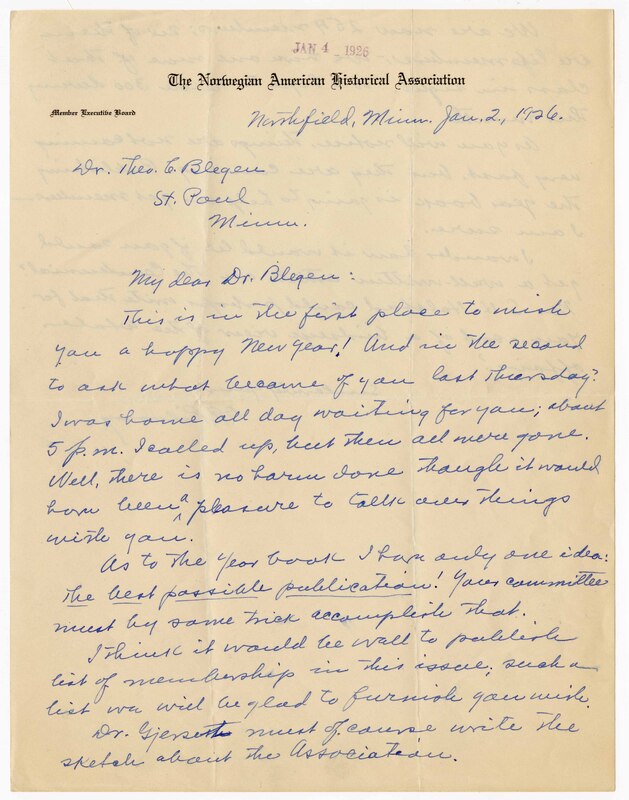 JAN 4 1926
The Norwegian American Historical Association
Member Executive Board
Northfield, Minn. Jan. 2, 1926.
Dr. Theo. C. Blegen
St. Paul
Minn.
My dear Dr. Blegen:
This is in the first place to wish
you a happy New Year! And in the second
to ask what became of you last Thursday?
I was home all day waiting for you; about
5 p.m. I called up, but then all were gone.
Well, there is no harm done though it would
have been a pleasure to talk over things
with you.
As to the Year book I have only one idea:
the best possible publication! Your committee
must by some trick accomplish that.
I think it would be well to publish
list of membership in this issue; such a
list we will be glad to furnish you with.
Dr. Gjerset must of course write the
sketch about the Association.